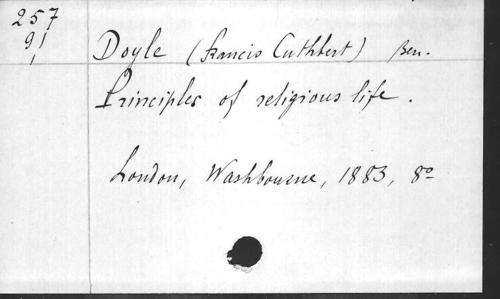 257
91
Doyle (Francis Cuthbert) Ben.
Principles of religious life.
London, Washbourne, 1883, 8º